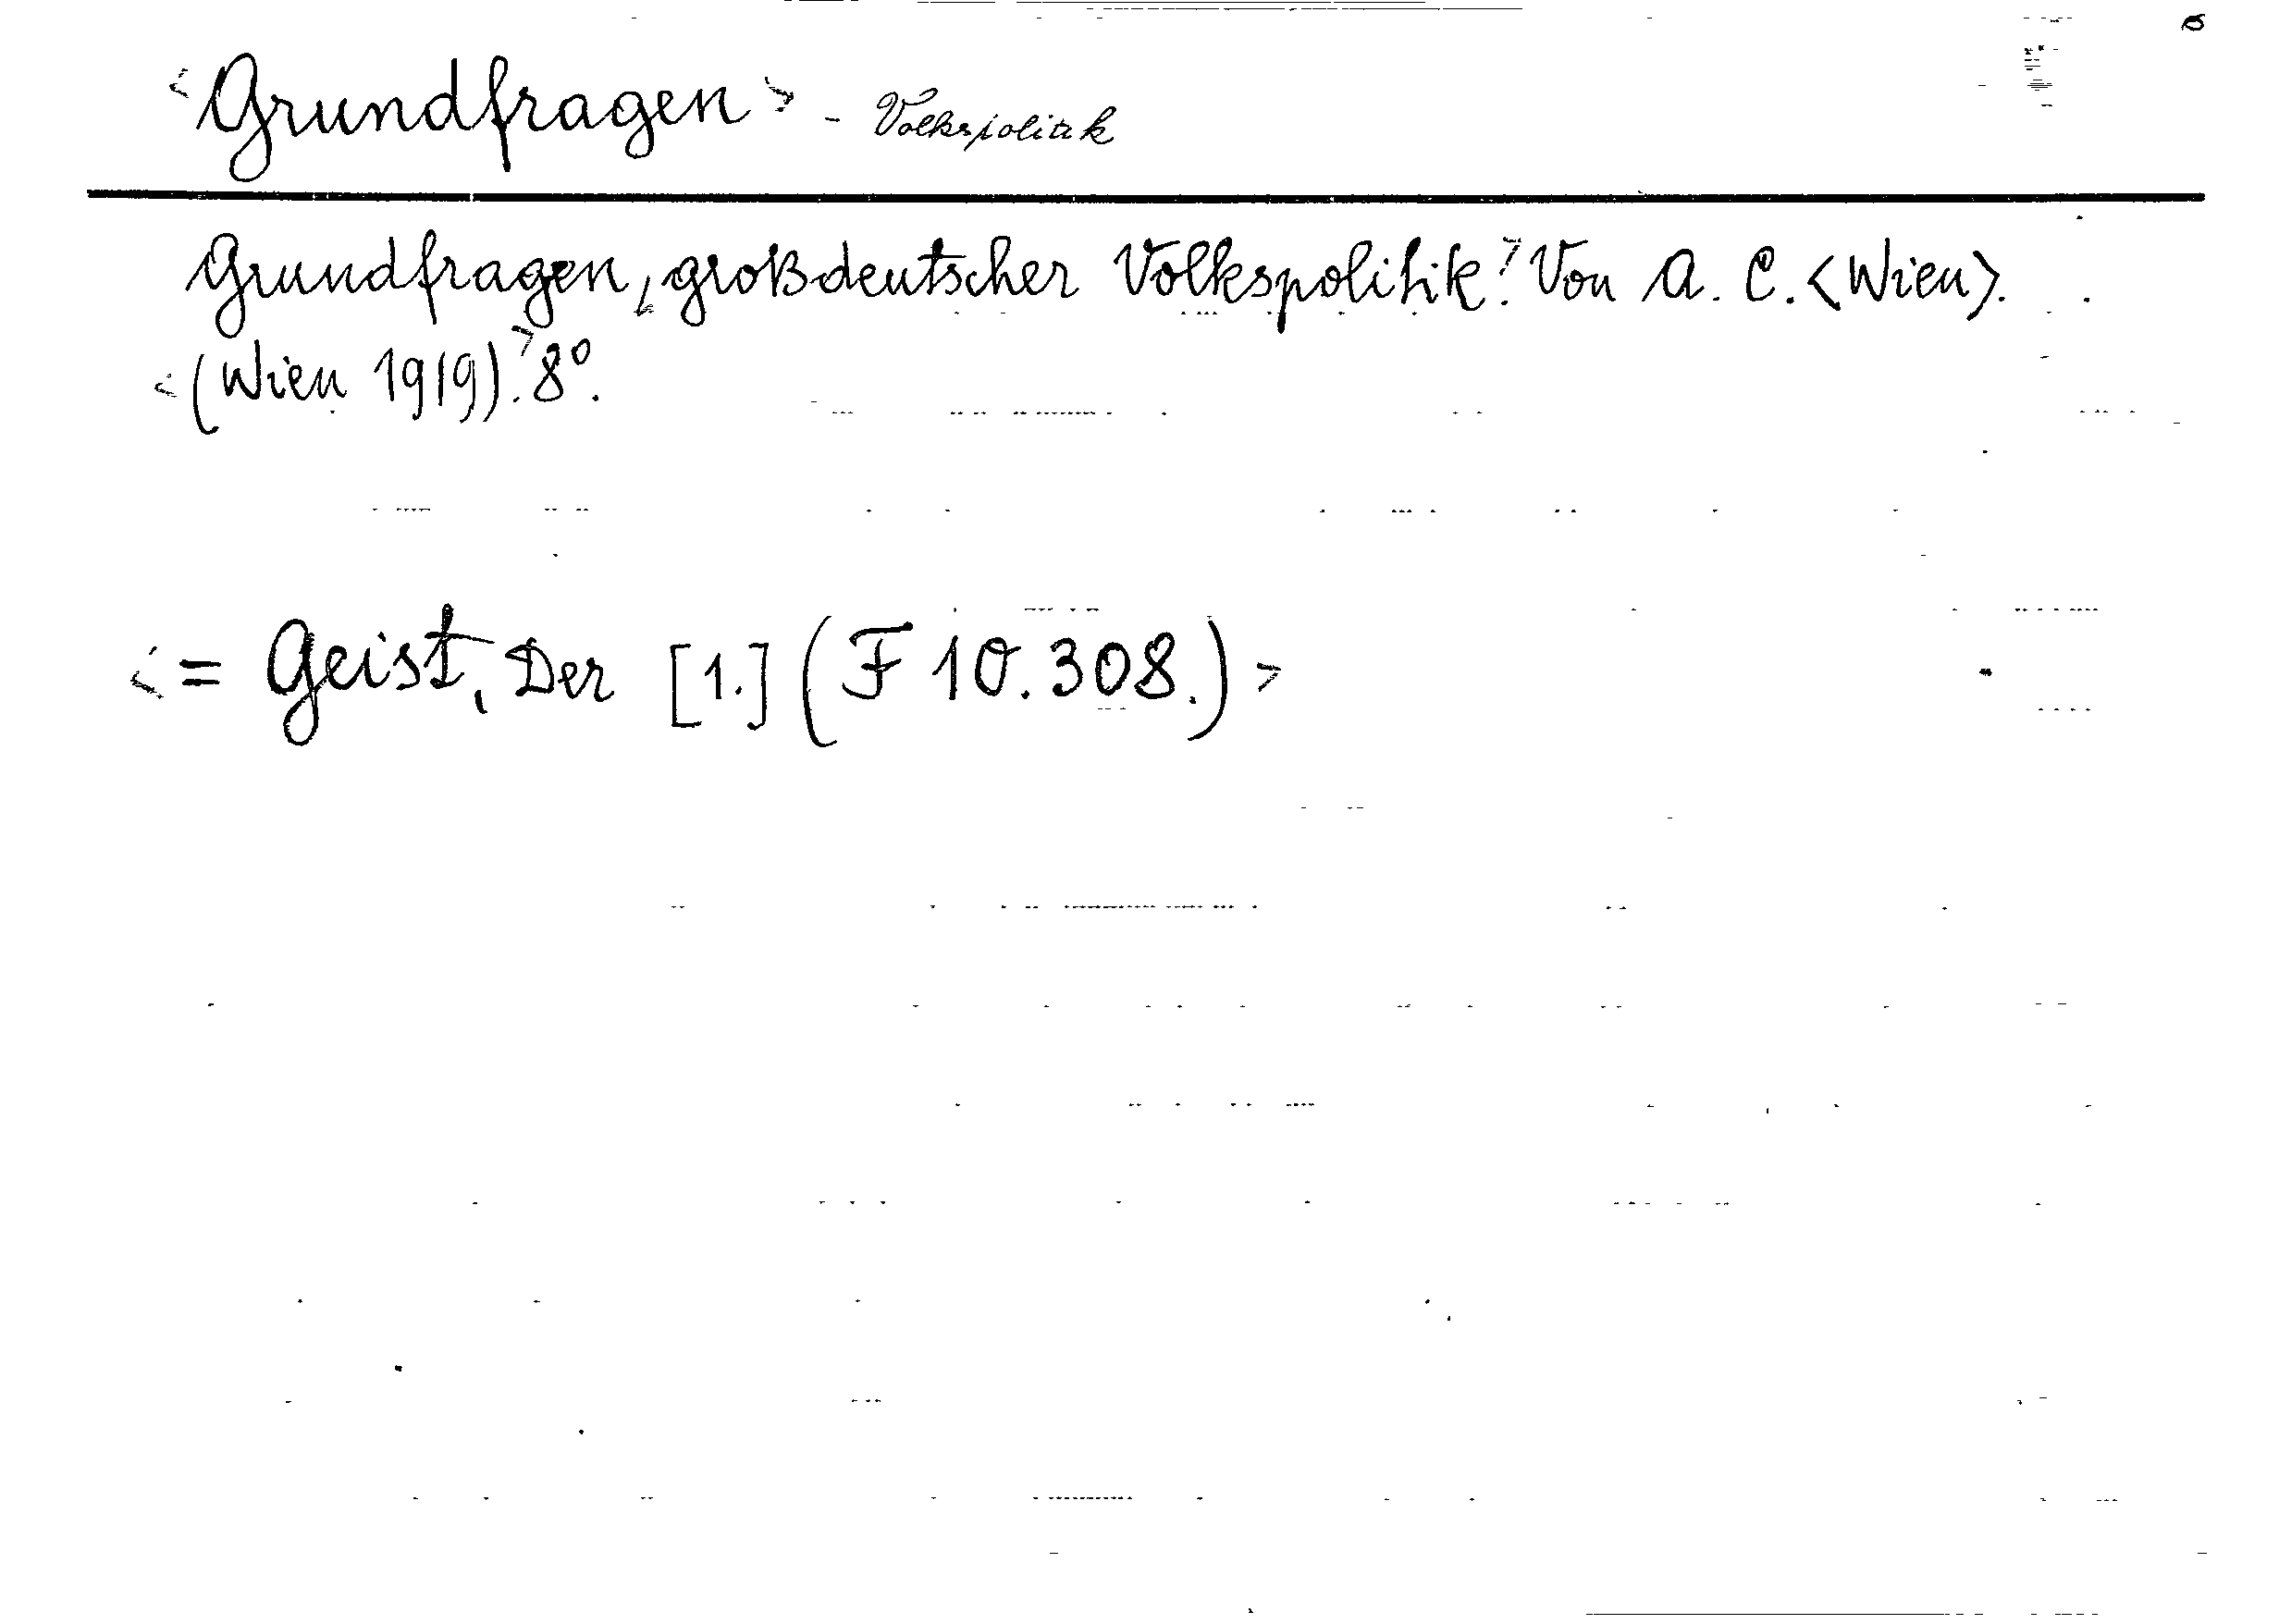 <Grundfragen> - Volkspolitik
Grundfragen <großdeutscher Volkspolitik.> Von A. C. <Wien>.
<(Wien 1919).> 8°.
<= Geist, Der [1.] (F 10.308.)>